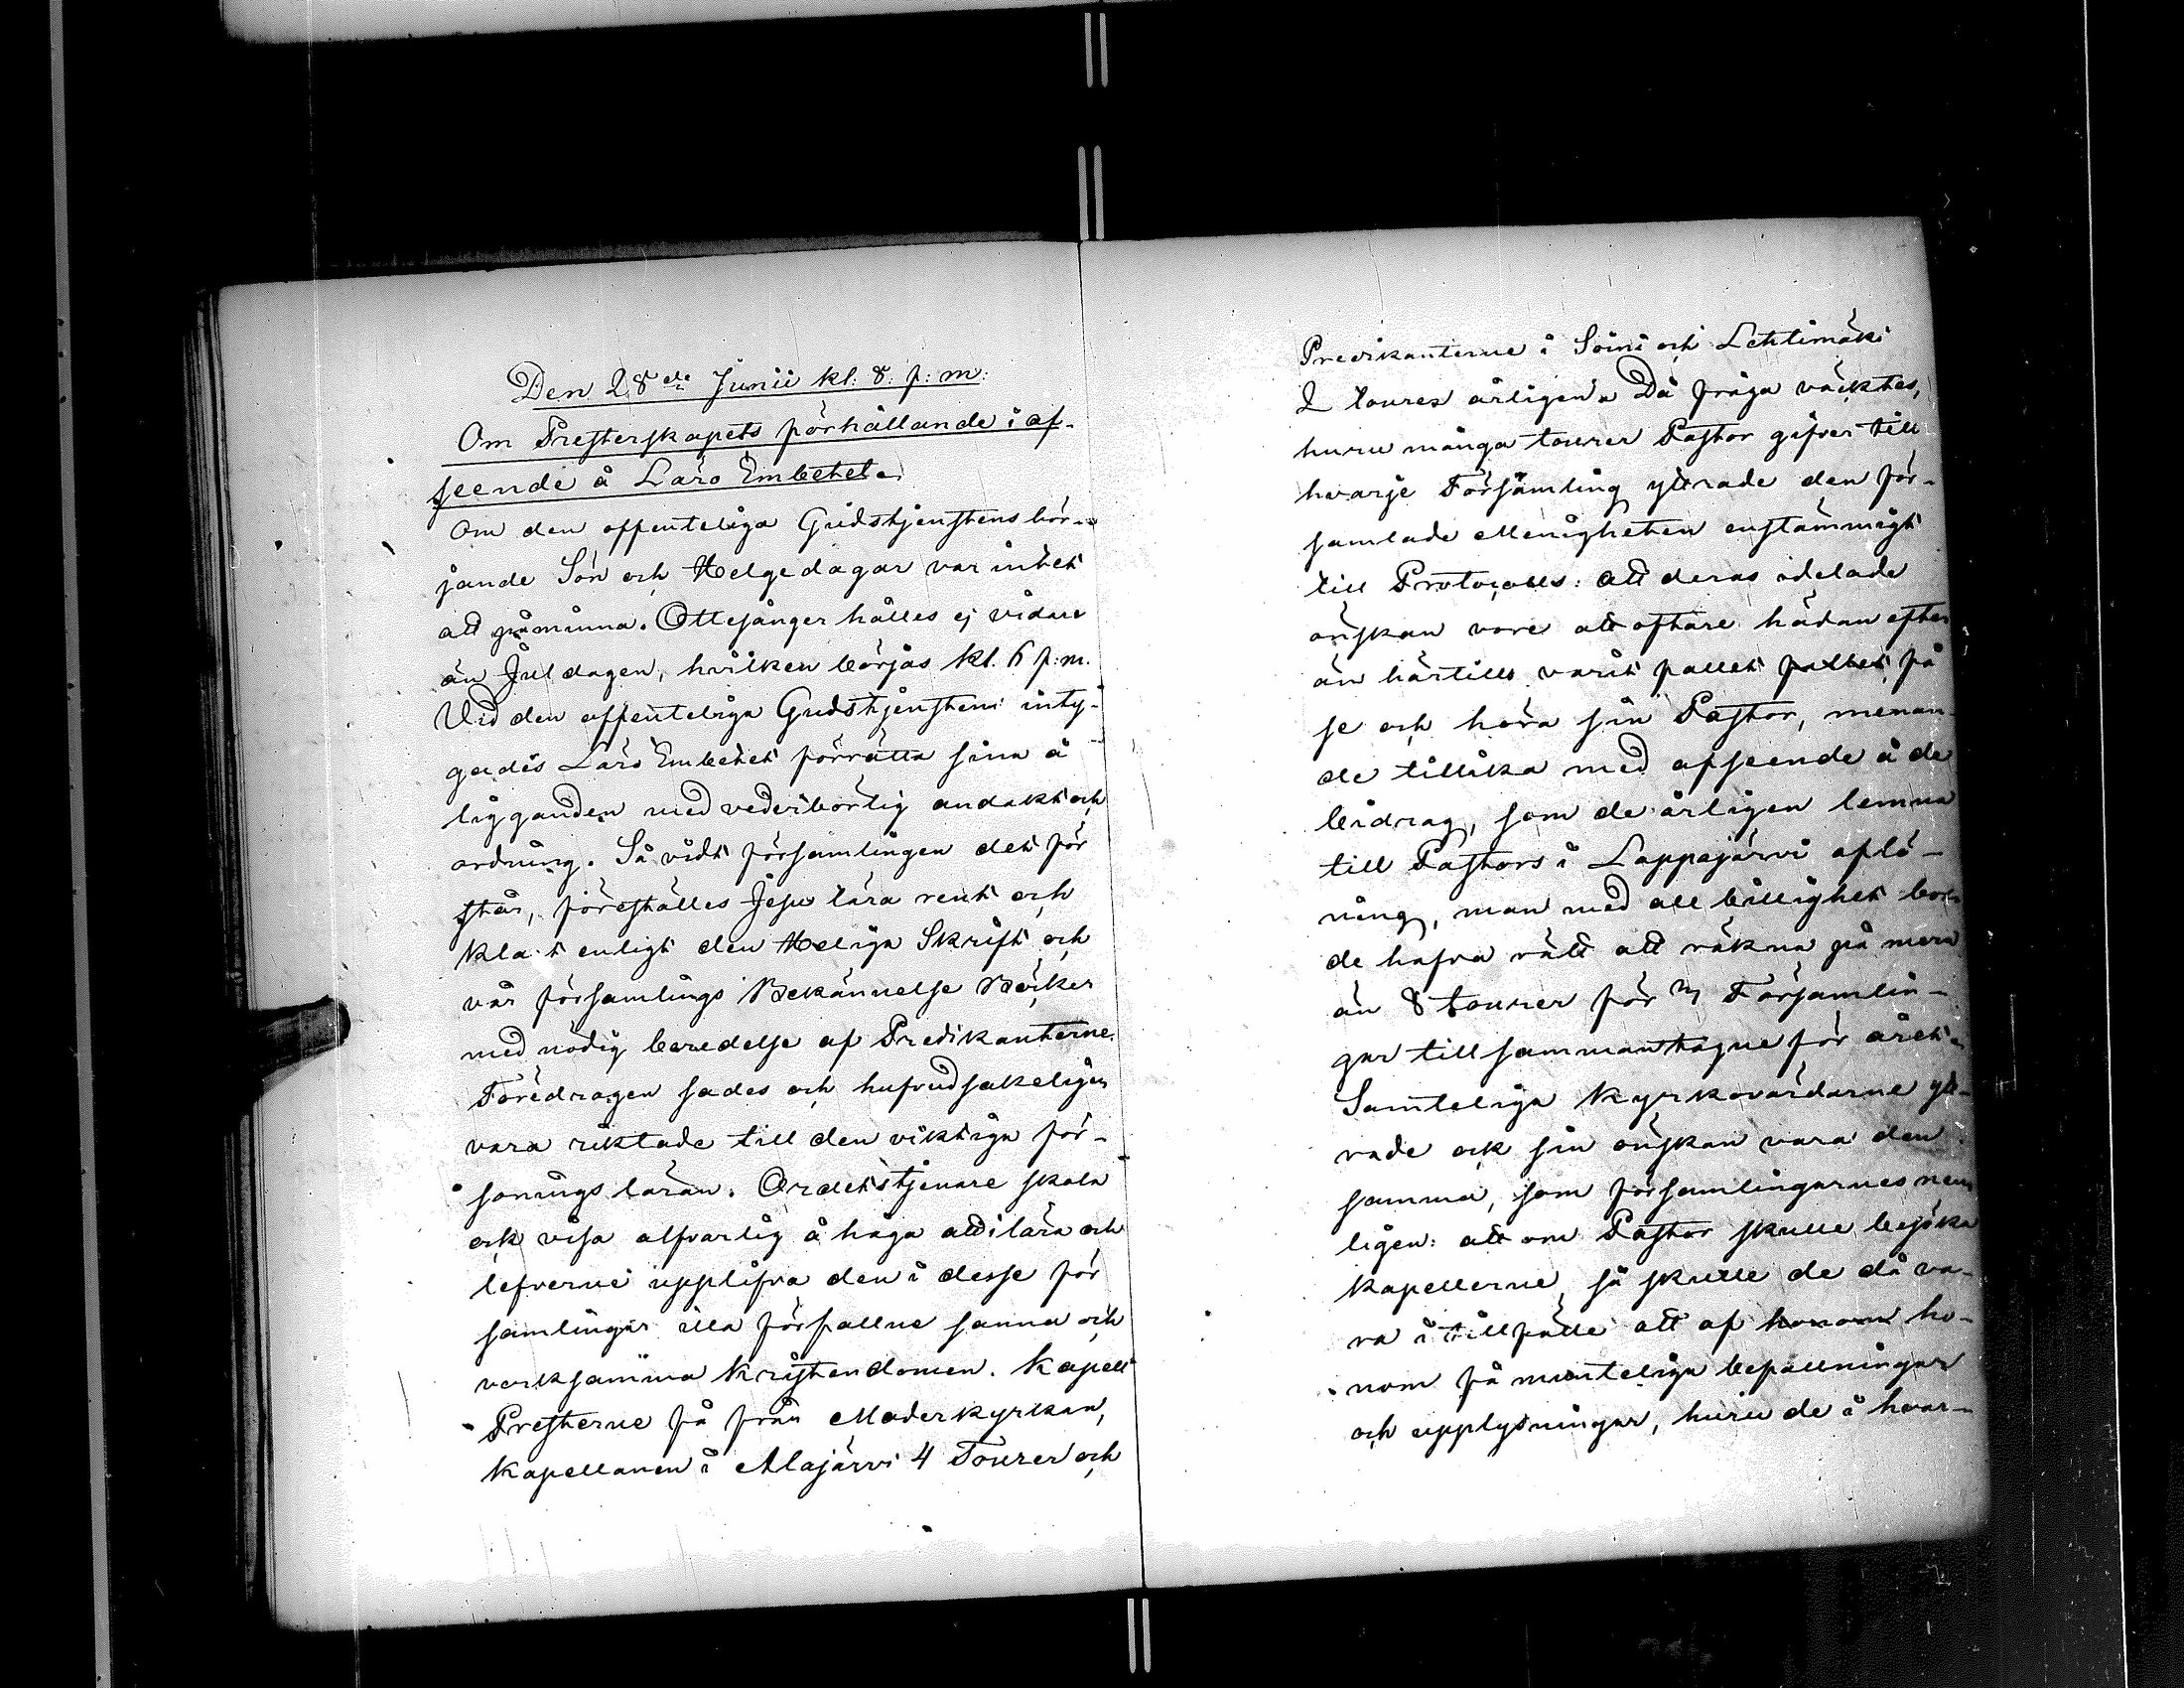 Den 28de Junii kl: 8. f: m:
Om Presterskapets förhållande i af-
seende å Läro Embetet.
Om den offenteliga Gudstjenstens bör-
jande Sön och Helgedagar var intet
att påminna. Ottesånger hålles ej vidare
än Juldagen, hvilken börjas kl. 6 f:m.
Vid den offenteliga Gudstjensten inty-
gades Läro Embetet förrätta sina å
ligganden med vederbörlig andakt och
ordning. Så vidt församlingen det för
står, föreställes Jesu lära rent och
klart enligt den Heliga Skrift och
vår församlings Bekännelse Böcker
med nödig beredelse af Predikanterne.
Föredragen sades och hufvudsakeligen
vara riktade till den viktiga för-
sonings läran. Ordets tjenare skola
ock visa alfvarlig å håga att i lära och
lefverne upplifva den i desse för
samlingar illa förfallne sanna och
verksamma Kristendomen. Kapell
Presterne få från Moderkyrkan,
Kapellanen i Alajärvi 4 Tourer och
Predikanterne i Soini och Lehtimäki
2 tourer årligen. Då fråga väcktes,
huru många tourer Pastor gifver till
hvarje Församling yttrade den för-
samlade Menigheten enstämmigt
till Protocolls: att deras odelade
önskan vore att oftare hädan efter
än härtills varit fallet fallet få
se och höra sin Pastor, menan-
de tillika med afseende å de
bidrag, som de årligen lemna
till Pastors i Lappajärvi aflö-
ning, man med all billighet bor-
de hafva rätt att räkna på mera
än 8 tourer för Församlin-
gar tillsammantagne för året.
Samteliga Kyrkovärdarne ytt-
rade ock sin önskan vara den
samma, som församlingarnes nem
ligen: att om Pastor skulle besöka
kapellerne, så skulle de då va-
ra i tillfälle att af honom ho-
nom få munteliga befallningar
och upplysningar, huru de i hvar-